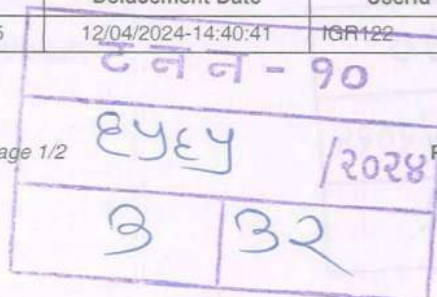 Defacement Date Userid
12/04/2024-14:40:41 IGR122
ट न न - १०
age 1/2 ६५६५ /२०२४
३ ३२